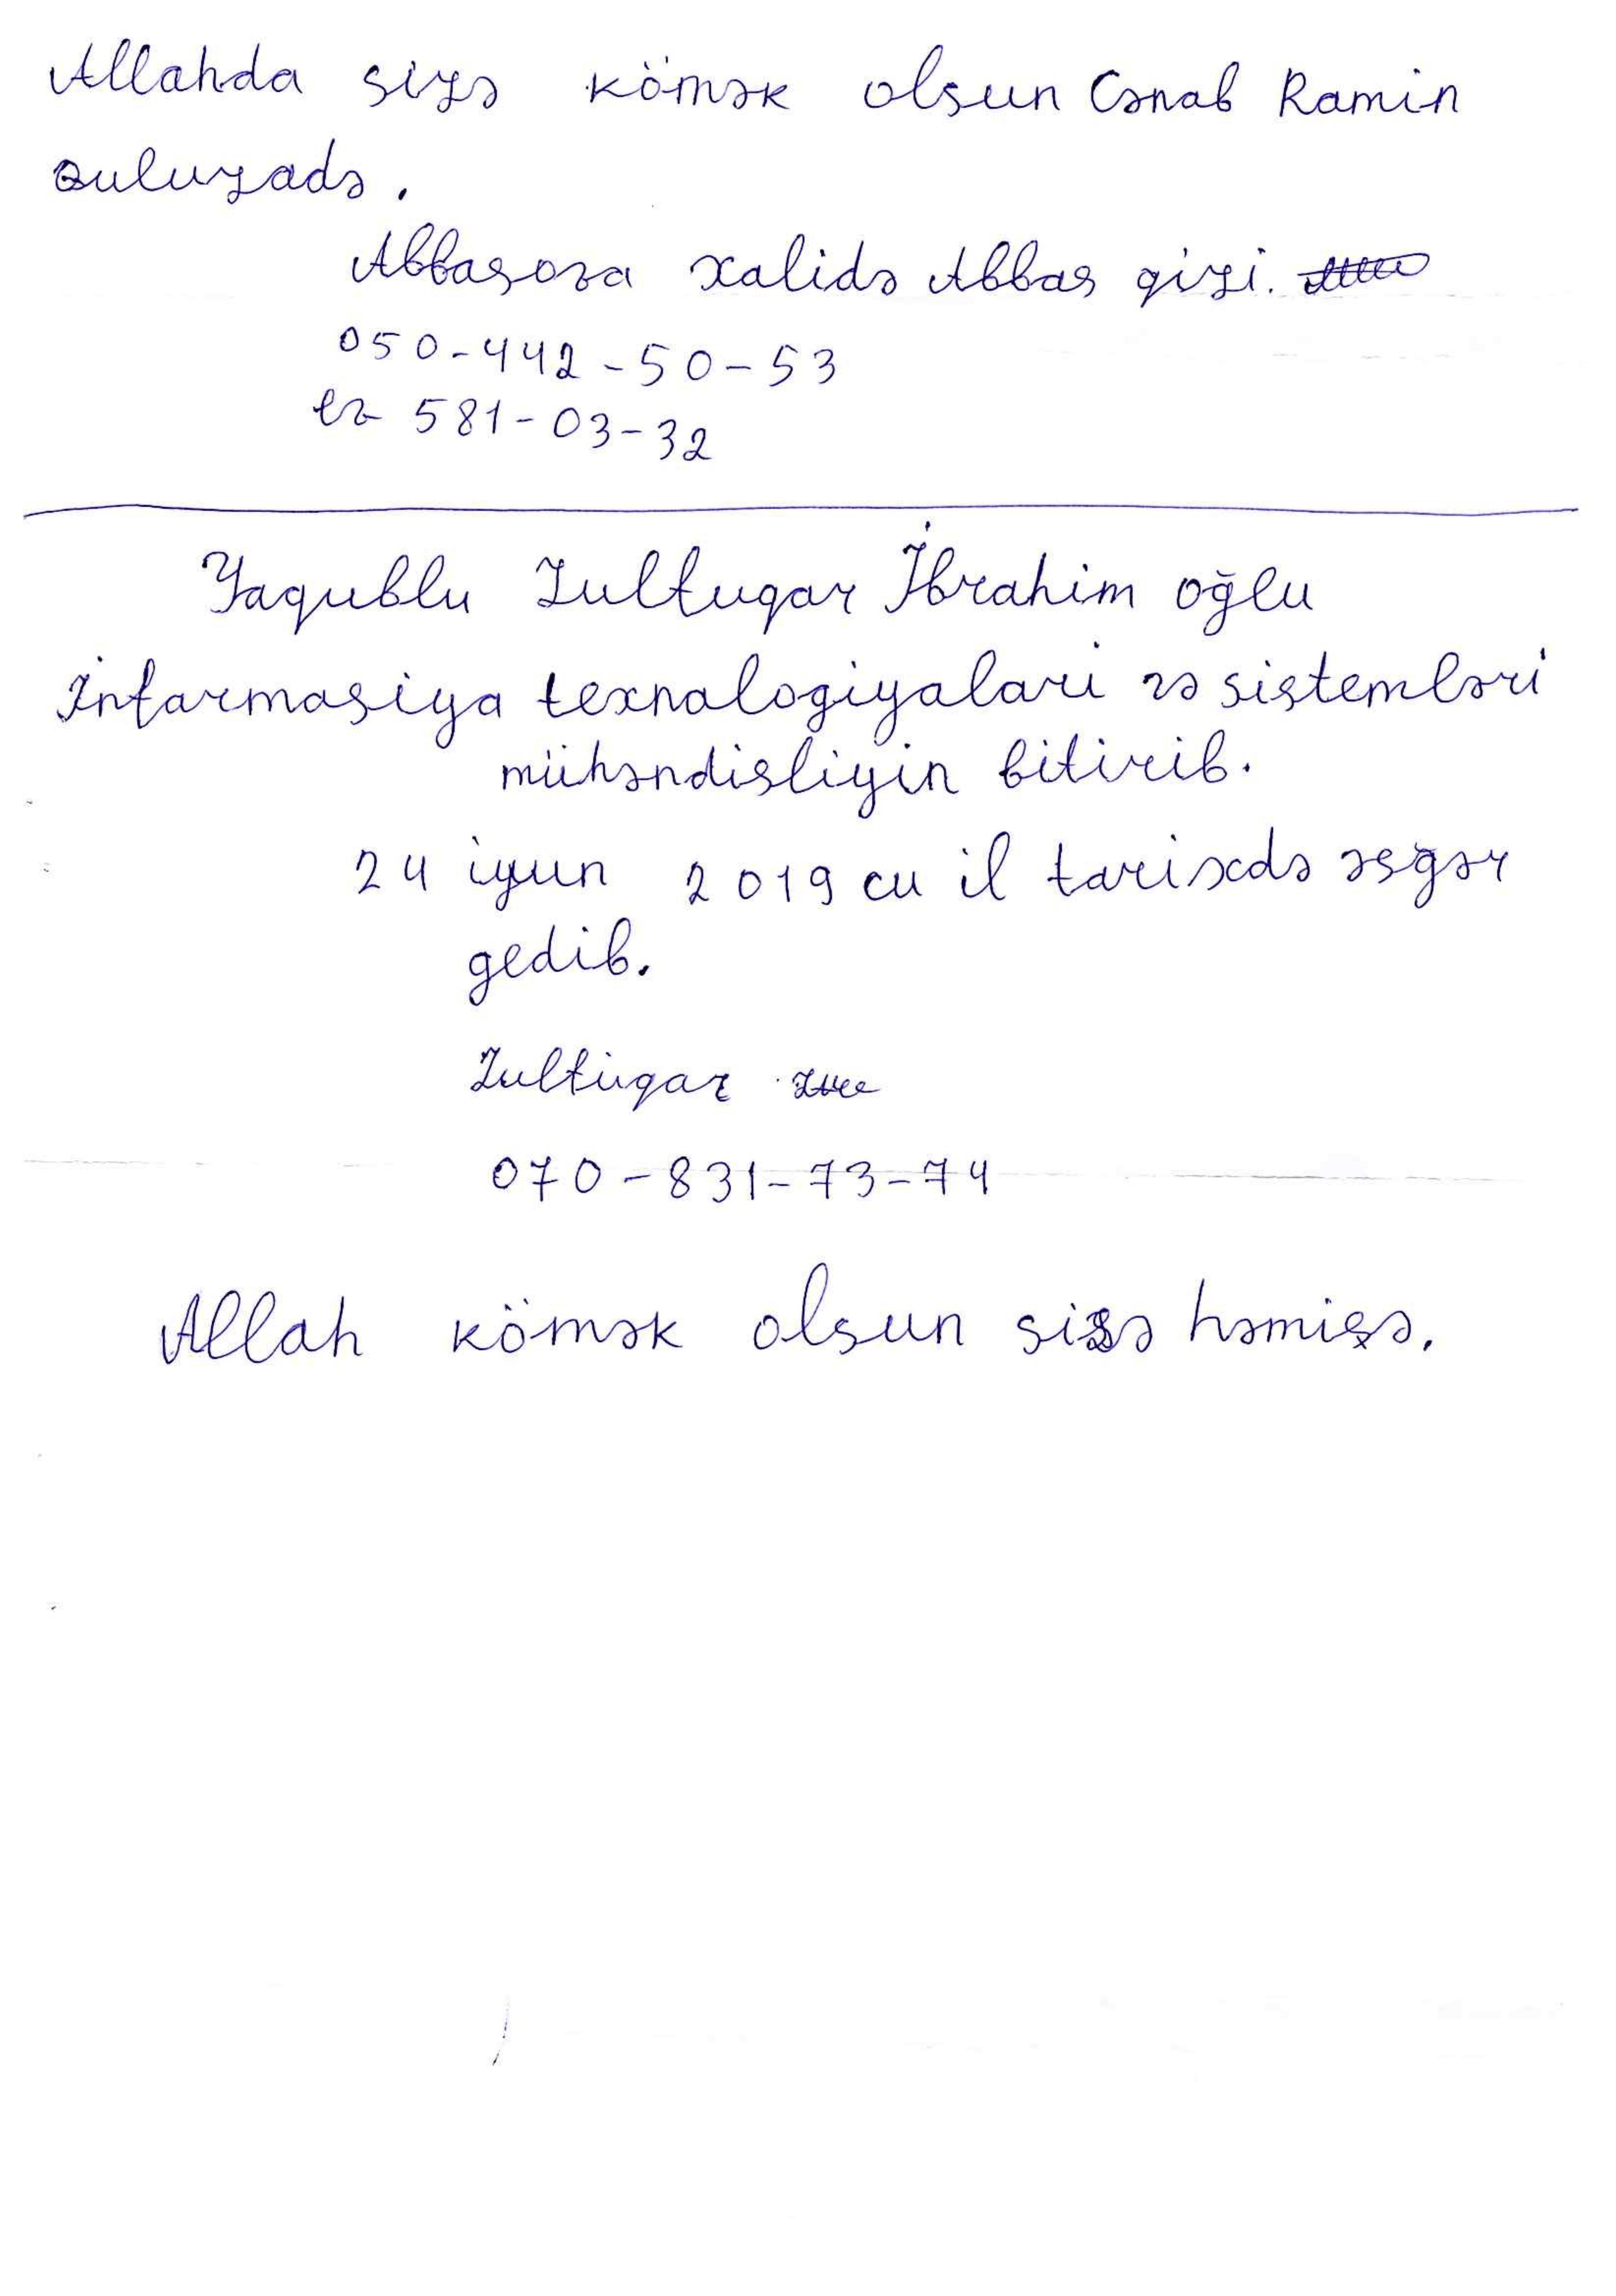 Allahda sizə kömək olsun Cənab Ramin
Quluzadə.
Abbasova Xalidə Abbas qizi.
050-442-50-53
ev 581-03-32
Yaqublu Zulfuqar İbrahim oğlu
İnfarmasiya texnalogiyalari və sistemləri
mühəndisliyin bitirib.
24 iyun 2019 cu il tarixdə əsgər
gedib.
Zulfüqar
070-831-73-74
Allah kömək olsun sizə həmişə.